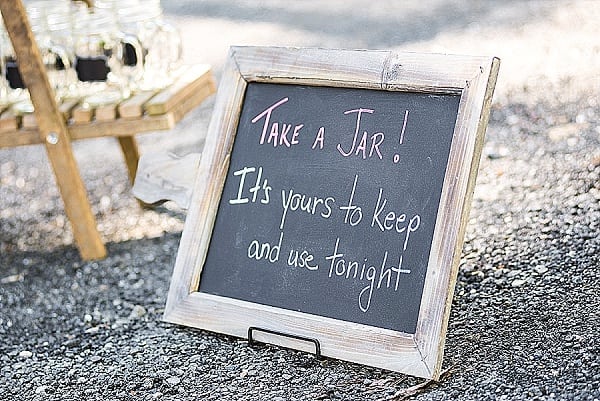 Take a Jar!
It's yours to keep
and use tonight